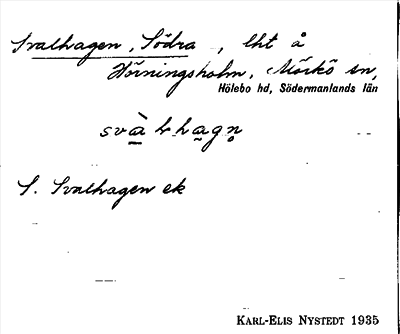 Svalhagen, Södra, lht å
Hörningsholm, Mörkö sn,
Hölebo hd, Södermanlands län
S. Svalhagen ek
KARL-ELIS NYSTEDT 1935